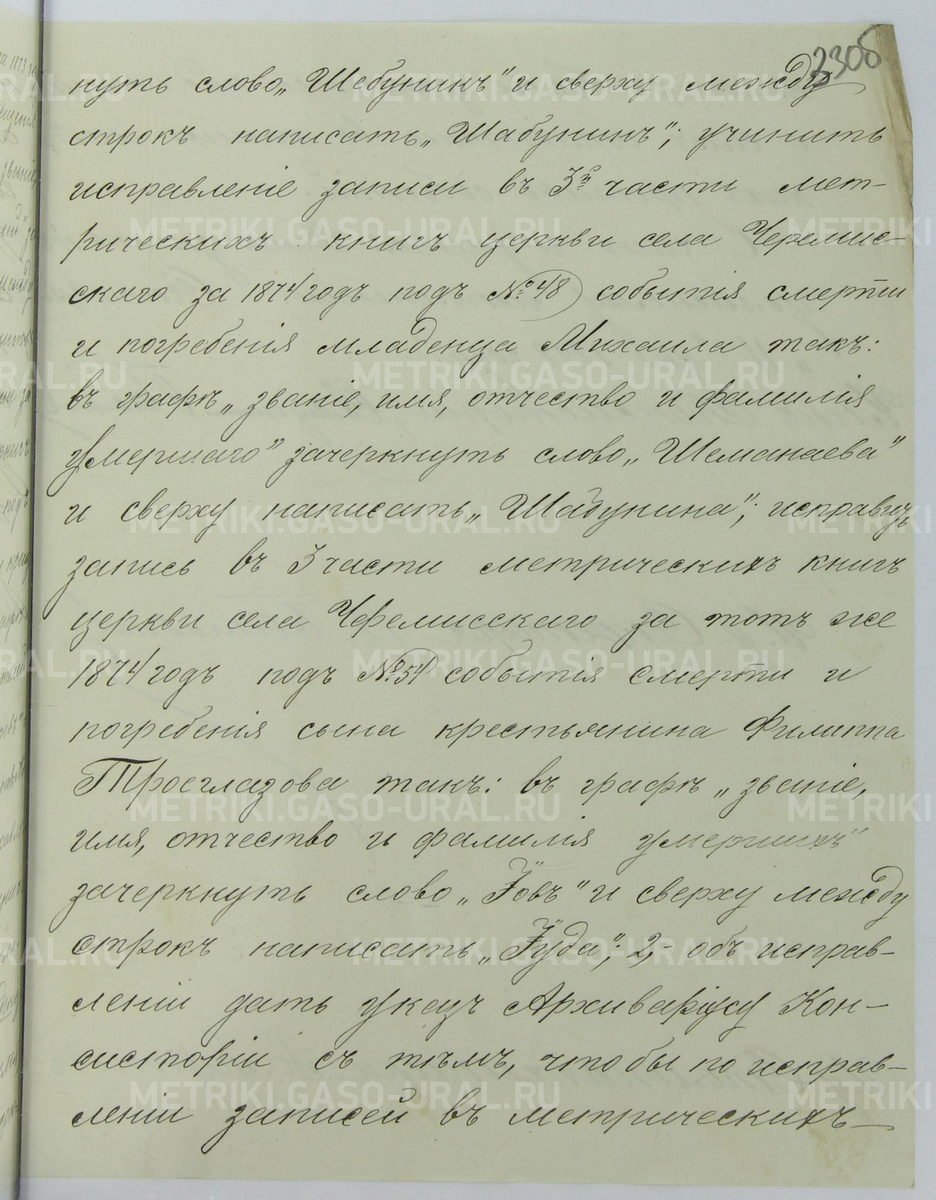 230б
нуть слово „Шебунинъ" и сверху между
строкъ написать „Шабунинъ"; учинить
исправленіе записи въ 3й части мет-
рическихъ книгъ церкви села Черемис-
скаго за 1874 годъ подъ №48) событія смерти
и погребенія младенца Михаила такъ:
въ графѣ „званіе, имя, отчество и фамилія
умершаго" зачеркнуть слово „Шеманаева"
и сверху написать „Шабунина"; исправить
запись въ 3 части метрическихъ книгъ
церкви села Черемисскаго за тотъ же
1874 годъ подъ №54 событія смерти и
погребенія сына крестьянина Филиппа
Троеглазова такъ: въ графѣ „званіе,
имя, отчество и фамилія умершихъ"
зачеркнуть слово „Іовъ" и сверху между
строкъ написать „Іуда"; 2,- объ исправ-
леніи дать указъ Архиваріусу Кон-
систоріи съ тѣмъ, чтобы по исправ-
леніи записей въ метрическихъ
METRIKI.GASO-URAL.RU